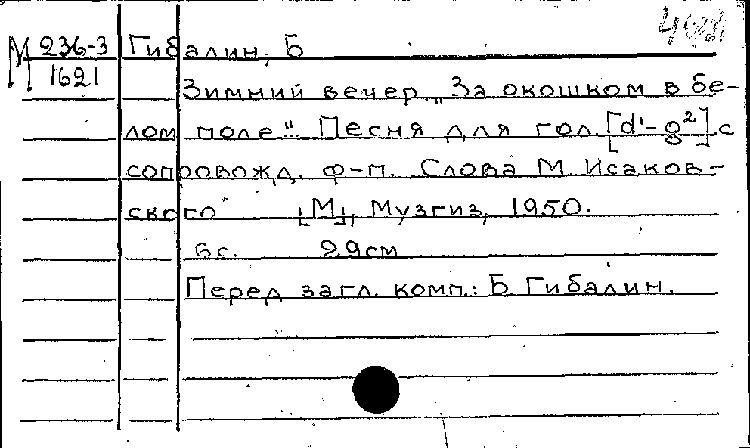 М 236-3 Гибалин, Б
1621
Зимний вечер „За окошком в бе-
лом поле". Песня для гол. [d¹-g²] с
сопровожд. ф-п. Слова М. Исаков-
ского [М], Музгиз, 1950.
6с. 29см
Перед загл. комп.: Б. Гибалин.